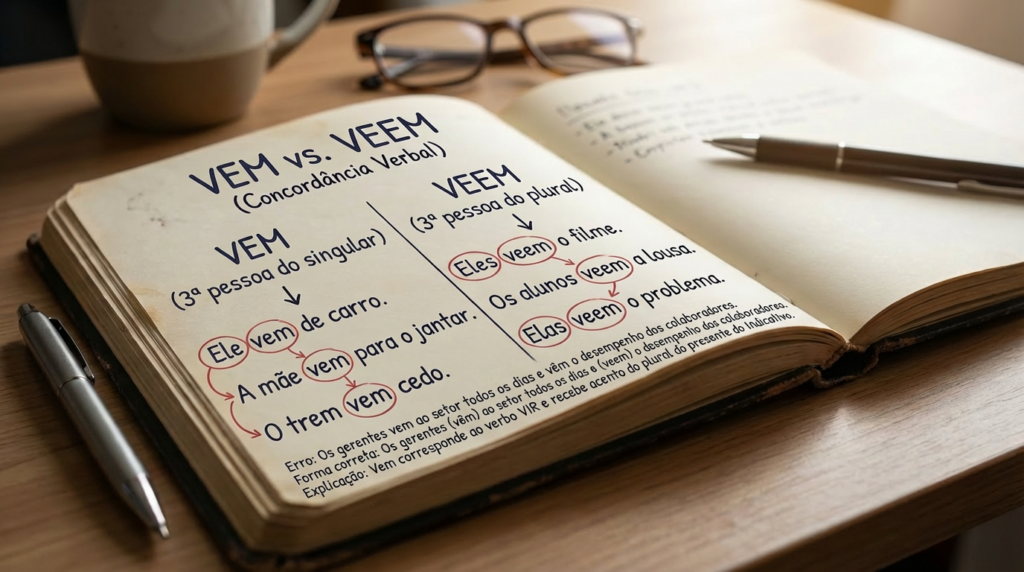 VEM vs. VEEM
(Concordância Verbal)
VEM
(3ª pessoa do singular)
Ele vem de carro.
A mãe vem para o jantar.
O trem vem cedo.
VEEM
(3ª pessoa do plural)
Eles veem o filme.
Os alunos veem a lousa.
Elas veem o problema.
Erro: Os gerentes vem ao setor todos os dias e vêm o desempenho das colaboradores.
Forma correta: Os gerentes (vêm) ao setor todos os dias e (veem) o desempenho das colaboradorea.
Explicação: Vem corresponde ao verbo VIR e recebe acento do plural do presente do Indicativo.